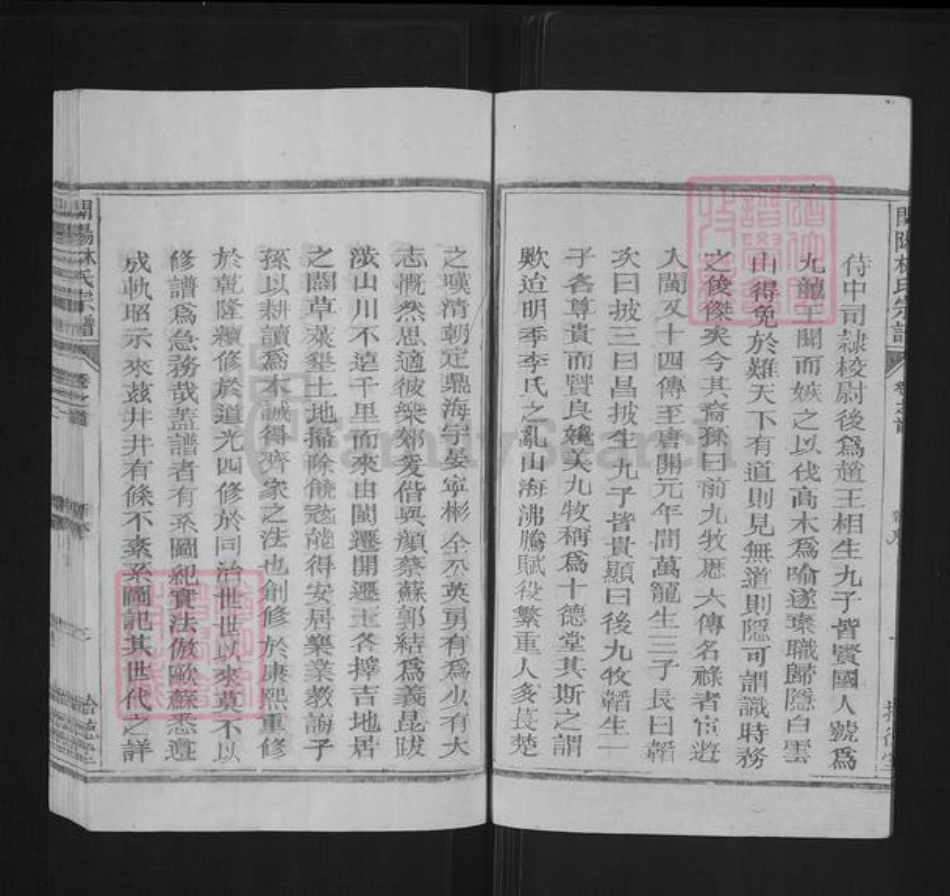 侍中司隸校尉後爲趙王相生九子皆賢國人號爲
九龍王聞而嫉之以伐高木爲喻遂棄職歸隱白雲
山得免於難天下有道則見無道則隱可謂識時務
之俊傑矣今其裔孫曰前九牧歷六傳名祿者宦遊
入閩又十四傳至唐開元年間萬寵生三子長曰韜
次曰披三曰昌披生九子皆貴顯曰後九牧韜生一
子各尊貴而賢良媲美九牧稱爲十德堂其斯之謂
歟迨明季李氏之亂山海沸騰賦役繁重人多萇楚
之嘆清朝定鼎海宇晏寧彬全公英勇有爲少有大
志慨然思適彼樂郊爰偕與顏蔡蘇郭結爲義昆跋
涉山川不遠千里而來由閩遷開遷玉各擇吉地居
之闢草萊墾土地掃除餘寇能得安居樂業教誨子
孫以耕讀爲本誠得齊家之法也創修於康熙重修
於乾隆續修於道光四修於同治世世以來莫不以
修譜爲急務哉蓋譜者有系圖紀實法倣歐蘇悉遵
成軌昭示來茲井井有條不紊系圖記其世代之詳
開陽林氏宗譜
卷之首
FamilySearch